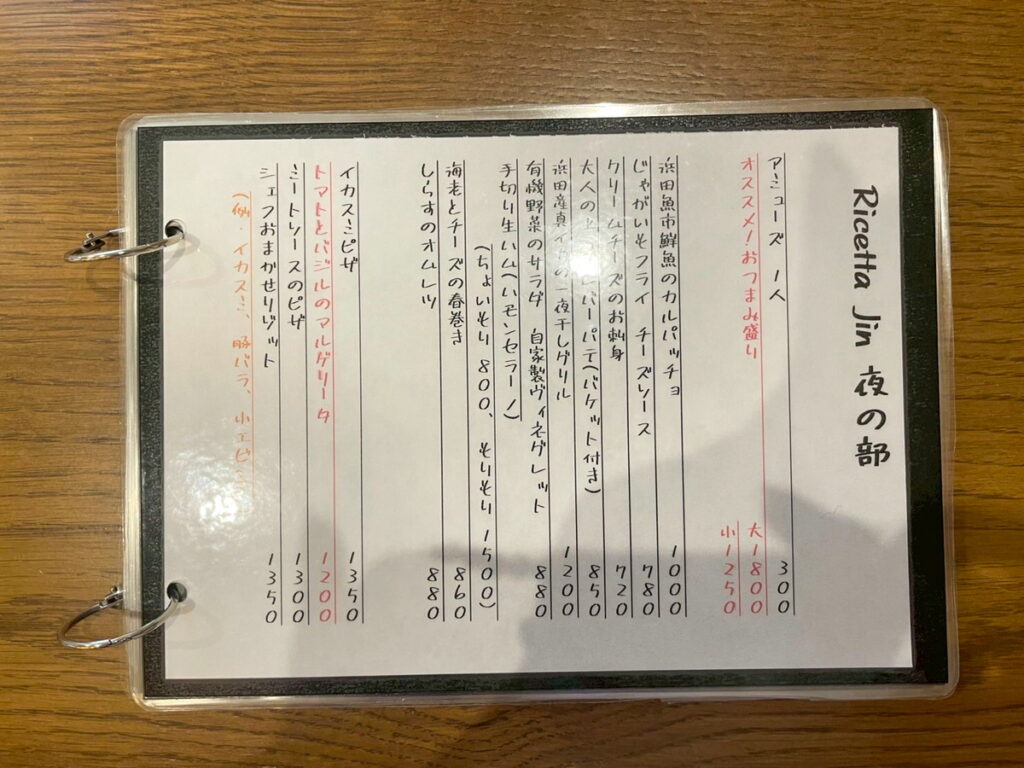 Ricetta Jin 夜の部
アミューズ 1人 300
オススメ!おつまみ盛り 大1800
小1250
浜田魚市鮮魚のカルパッチョ 1000
じゃがいもフライ チーズソース 780
クリームチーズのお刺身 720
大人の レバーパテ(バケット付き) 850
浜田産真 の一夜干しグリル 1200
有機野菜のサラダ 自家製ヴィネグレット 880
手切り生ハム(ハモンセラーノ)
(ちょいもり 800、 もりもり 1500)
海老とチーズの春巻き 860
しらすのオムレツ 880
イカスミピザ 1350
トマトとバジルのマルゲリータ 1200
ミートソースのピザ 1300
シェフおまかせリゾット 1350
(例・イカスミ、豚バラ、小エビ